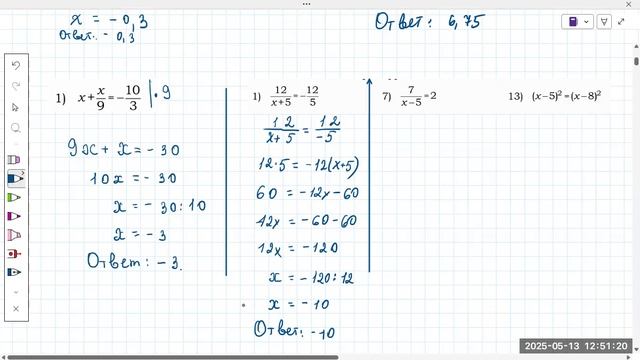 x = - 0,3
Ответ: - 0,3
Ответ: 6,75
1) x + x/9 = - 10/3 | · 9
9x + x = - 30
10x = - 30
x = - 30 : 10
x = - 3
Ответ: - 3.
1) 12/(x+5) = - 12/5
12/(x+5) = 12/-5
12·5 = -12(x+5)
60 = -12x - 60
12x = - 60 - 60
12x = - 120
x = - 120 : 12
x = - 10
Ответ: - 10
7) 7/(x-5) = 2
13) (x-5)² = (x-8)²
2025-05-13 12:51:20